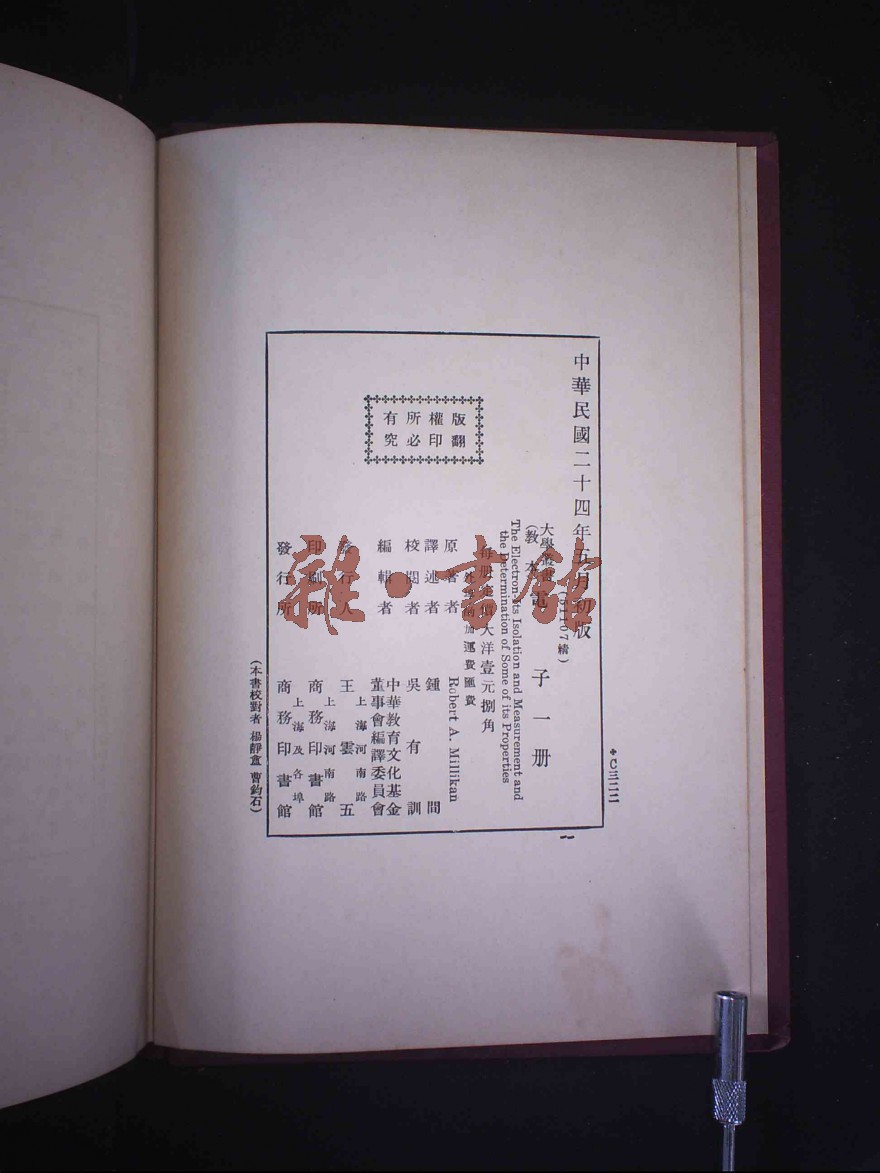 中華民國二十四年五月初版
(51107精)
大學叢書
(教本)
電子一册
The Electron-its Isolation and Measurement and
the Determination of Some of its Properties
每册定價大洋壹元捌角
外埠酌加運費匯費
原著者 Robert A. Millikan
譯述者 鍾間
校閱者 吳有訓
編輯者 中華教育文化基金
董事會編譯委員會
發行人 王雲五
上海河南路
印刷所 商務印書館
上海河南路
發行所 商務印書館
上海及各埠
版權所有
翻印必究
(本書校對者 楊靜盦 曹鈞石)
雜·書館